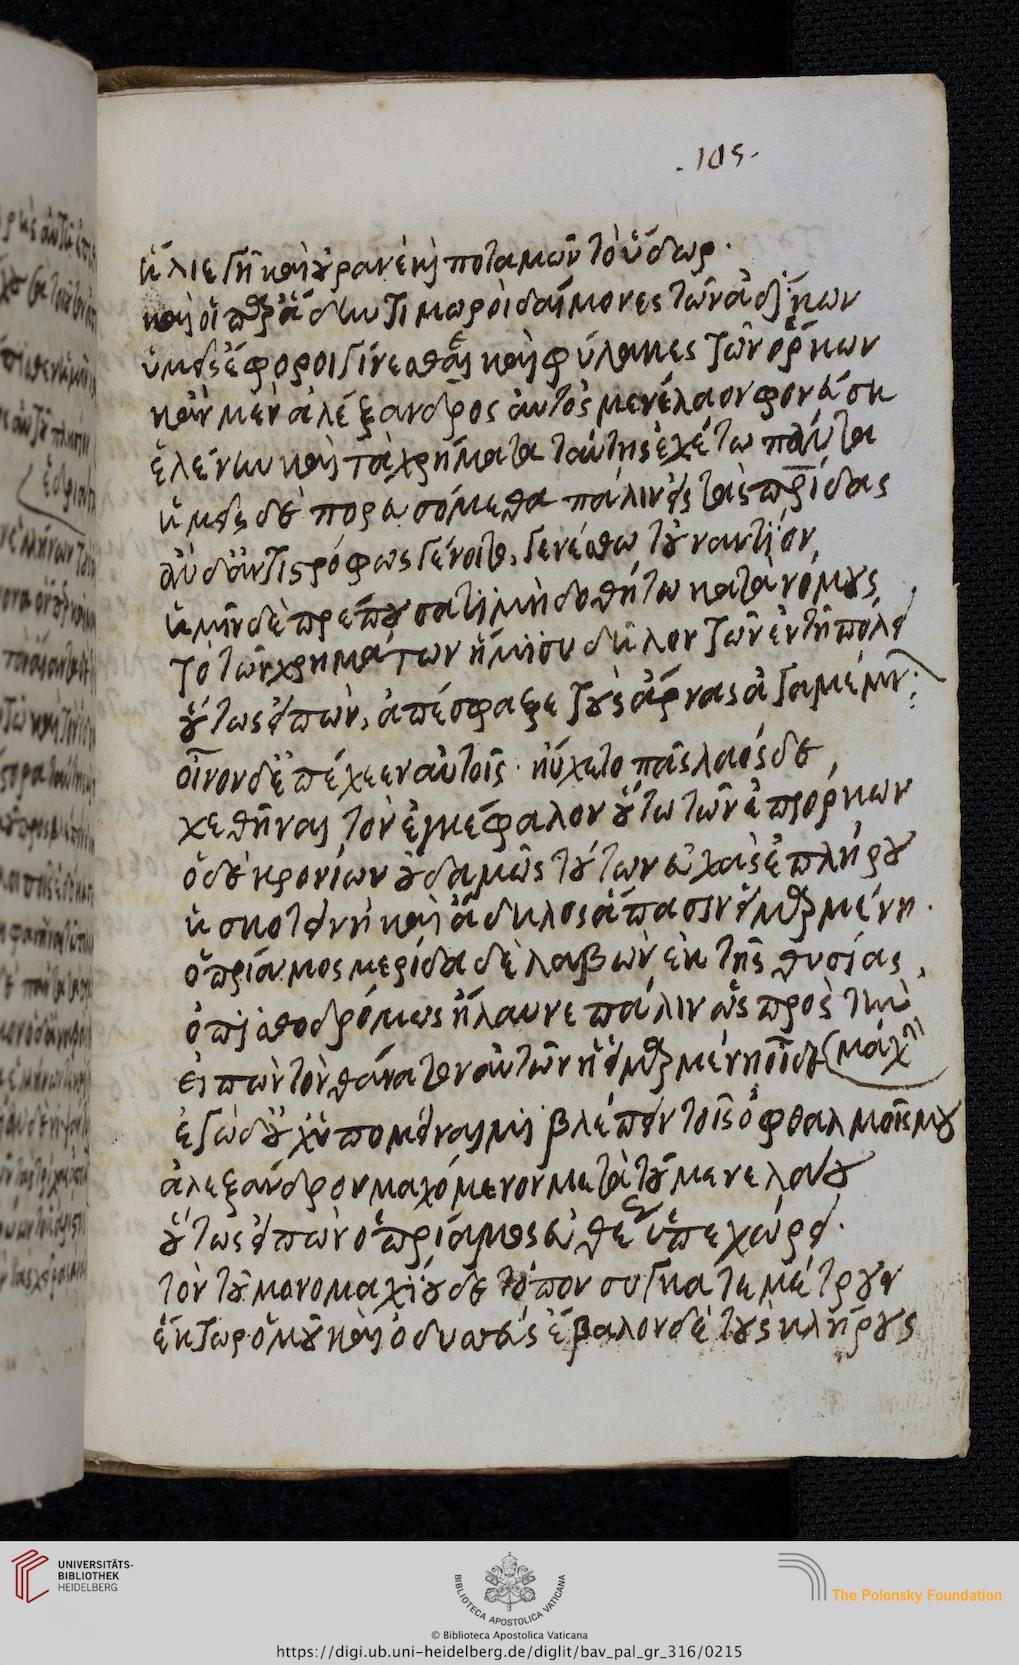 .105.
ἥλιε γῆ καὶ οὐρανὲ καὶ ποταμῶν τὸ ὕδωρ.
καὶ οἱ παρ' ᾅδην τιμωροὶ δαίμονες τῶν ἀδίκων
ὑμεῖς ἔφοροι γίνεσθαι καὶ φύλακες τῶν ὅρκων
κἂν μὲν ἀλέξανδρος αὐτὸς μενέλαον φονεύσῃ
ἑλένην καὶ τὰ χρήματα ταύτης ἐχέτω πάντα
ἡμεῖς δὲ πορευσόμεθα πάλιν εἰς τὰς πατρίδας
ἂν δ' ἀντιστρόφως γένοιτο, γενέσθω τοὐναντίον,
ἡμῖν δὲ πρέπουσα τιμὴ δοθήτω κατὰ νόμους
τὸ τῶν χρημάτων ἥμισυ δῆλον τῶν ἐν τῇ πόλει
οὕτως εἰπὼν, ἀπέσφαξε τοὺς ἄρνας ἀγαμέμνων:
οἶνον δ' ἐπέχεεν αὐτοῖς· ηὔχετο πᾶς λαός δε,
χεθῆναι τὸν ἐγκέφαλον οὕτω τῶν ἐπιόρκων
ὁ δὲ κρονίων οὐδαμῶς τούτων εὐχὰς ἐπλήρου
ἡ σκοτεινὴ καὶ ἄδηλος ἅπασιν εἱμαρμένη.
ὁ πρίαμος μερίδα δὲ λαβὼν ἐκ τῆς θυσίας,
ὀπισθοδρόμως ἤλαυνε πάλιν ὡς πρὸς τὴν
εἰπὼν τὸν θάνατον αὐτῶν ἡ εἱμαρμένη οἶδε (μάχην
ἐγὼ δ' οὐχ ὑπομείναιμι βλέπειν τοῖς ὀφθαλμοῖς μου
ἀλεξάνδρον μαχόμενον μετὰ τοῦ μενελάου
οὕτως εἰπὼν ὁ πρίαμος εὐθὺς ὑπεχώρει.
τὸν τοῦ μονομαχίου δὲ τόπον συγκατεμέτρουν
ἕκτωρ ὁμοῦ καὶ ὀδυσσεὺς ἔβαλον δὲ τοὺς κλήρους
UNIVERSITÄTS-
BIBLIOTHEK
HEIDELBERG
BIBLIOTECA APOSTOLICA VATICANA
The Polonsky Foundation
© Biblioteca Apostolica Vaticana
https://digi.ub.uni-heidelberg.de/diglit/bav_pal_gr_316/0215